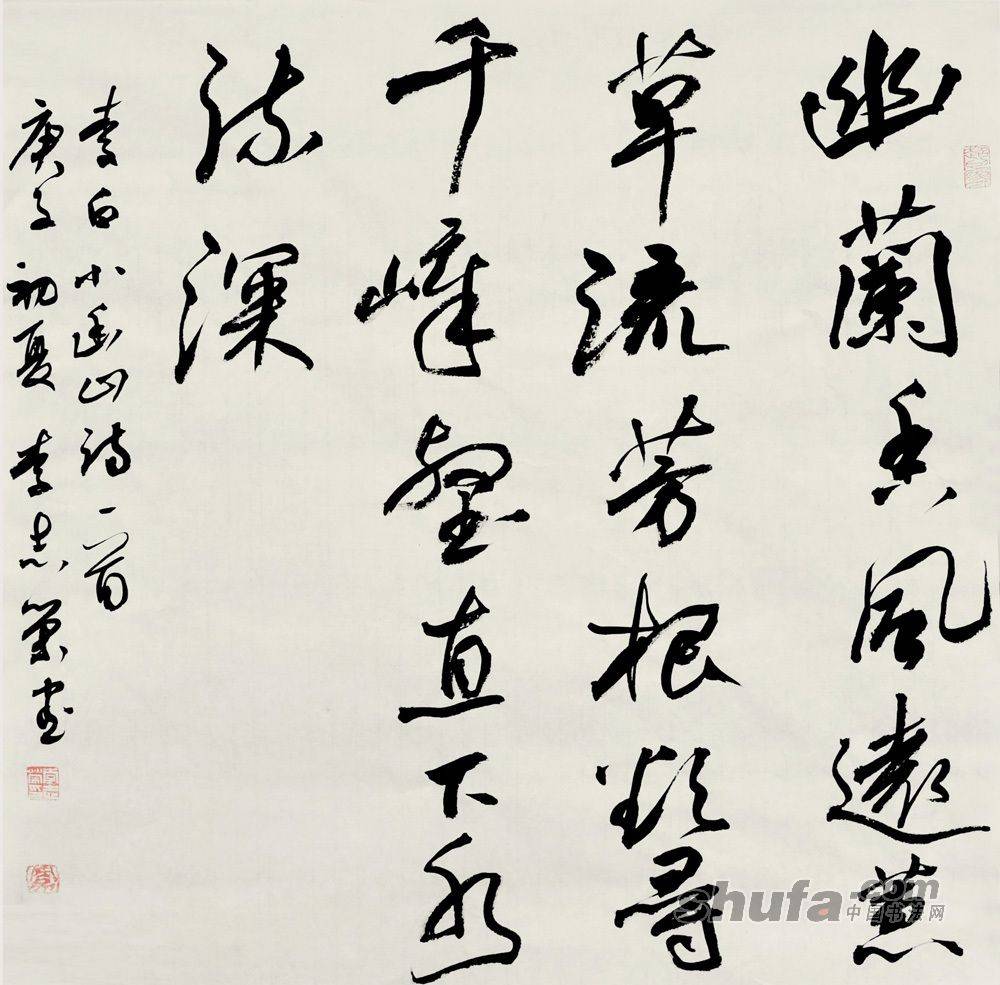 幽蘭香風遠蕙
草流芳根数尋
千峰壑直下
深
李白小山詩一首
庚子初夏 李志書
shufa.com
中国书法网